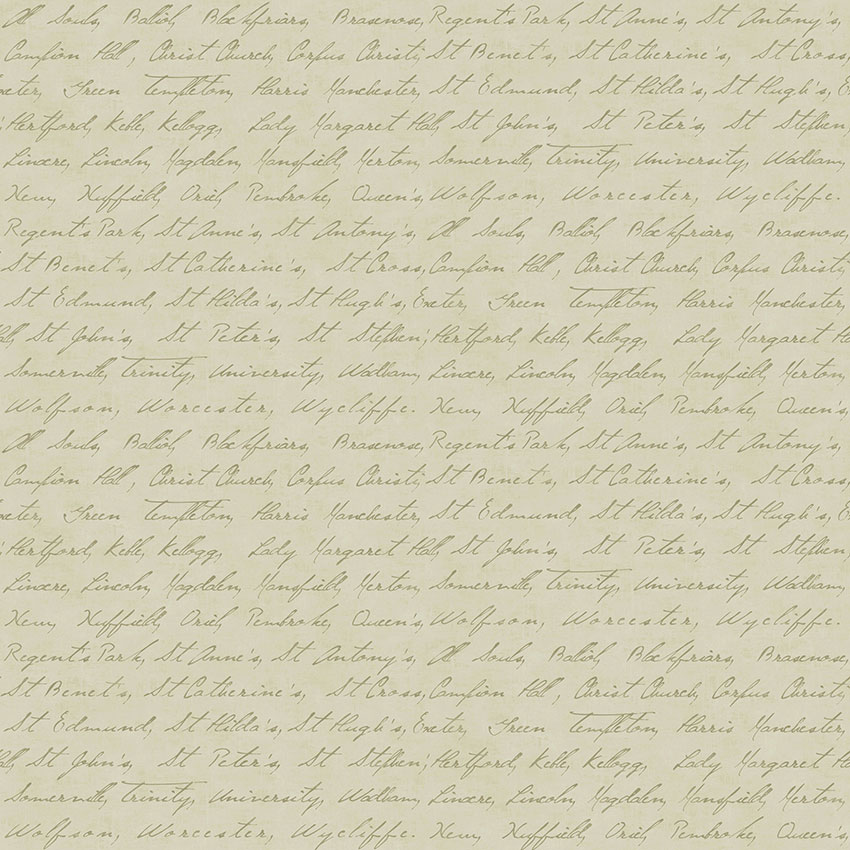 All Souls, Balliol, Blackfriars, Brasenose, Regent's Park, St Anne's, St Antony's,
Campion Hall, Christ Church, Corpus Christi, St Benet's, St Catherine's, St Cross,
Exeter, Green Templeton, Harris Manchester, St Edmund, St Hilda's, St Hugh's, E
Hertford, Keble, Kellogg, Lady Margaret Hall, St John's, St Peter's, St Stephen
Linacre, Lincoln, Magdalen, Mansfield, Merton, Somerville, Trinity, University, Wadham,
New, Nuffield, Oriel, Pembroke, Queen's, Wolfson, Worcester, Wycliffe.
Regent's Park, St Anne's, St Antony's, All Souls, Balliol, Blackfriars, Brasenose,
St Benet's, St Catherine's, St Cross, Campion Hall, Christ Church, Corpus Christi,
St Edmund, St Hilda's, St Hugh's, Exeter, Green Templeton, Harris Manchester,
Hall, St John's, St Peter's, St Stephen', Hertford, Keble, Kellogg, Lady Margaret Ha
Somerville, Trinity, University, Wadham, Linacre, Lincoln, Magdalen, Mansfield, Merton,
Wolfson, Worcester, Wycliffe. New, Nuffield, Oriel, Pembroke, Queen's,
All Souls, Balliol, Blackfriars, Brasenose, Regent's Park, St Anne's, St Antony's,
Campion Hall, Christ Church, Corpus Christi, St Benet's, St Catherine's, St Cross,
Exeter, Green Templeton, Harris Manchester, St Edmund, St Hilda's, St Hugh's, E
Hertford, Keble, Kellogg, Lady Margaret Hall, St John's, St Peter's, St Stephen
Linacre, Lincoln, Magdalen, Mansfield, Merton, Somerville, Trinity, University, Wadham,
New, Nuffield, Oriel, Pembroke, Queen's, Wolfson, Worcester, Wycliffe.
Regent's Park, St Anne's, St Antony's, All Souls, Balliol, Blackfriars, Brasenose,
St Benet's, St Catherine's, St Cross, Campion Hall, Christ Church, Corpus Christi,
St Edmund, St Hilda's, St Hugh's, Exeter, Green Templeton, Harris Manchester,
Hall, St John's, St Peter's, St Stephen', Hertford, Keble, Kellogg, Lady Margaret Ha
Somerville, Trinity, University, Wadham, Linacre, Lincoln, Magdalen, Mansfield, Merton,
Wolfson, Worcester, Wycliffe. New, Nuffield, Oriel, Pembroke, Queen's,